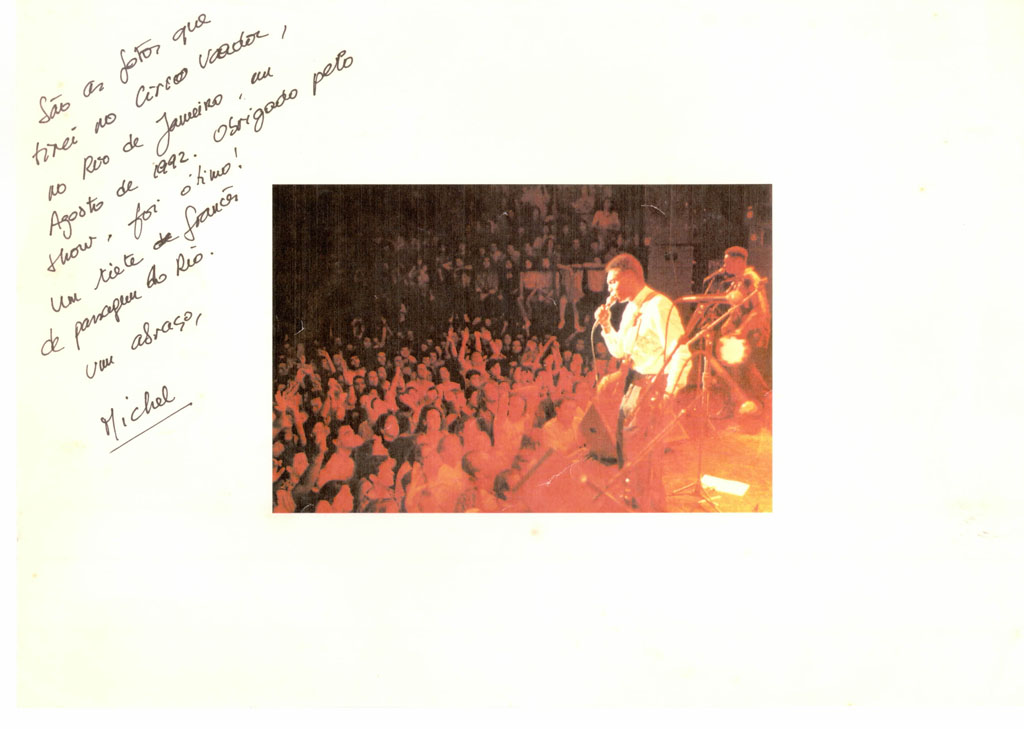 São as fotos que
tirei no Circo Voador,
no Rio de Janeiro, em
Agosto de 1992. Obrigado pelo
show, foi ótimo!
Um tiete francês
de passagem ao Rio.
um abraço,
Michel